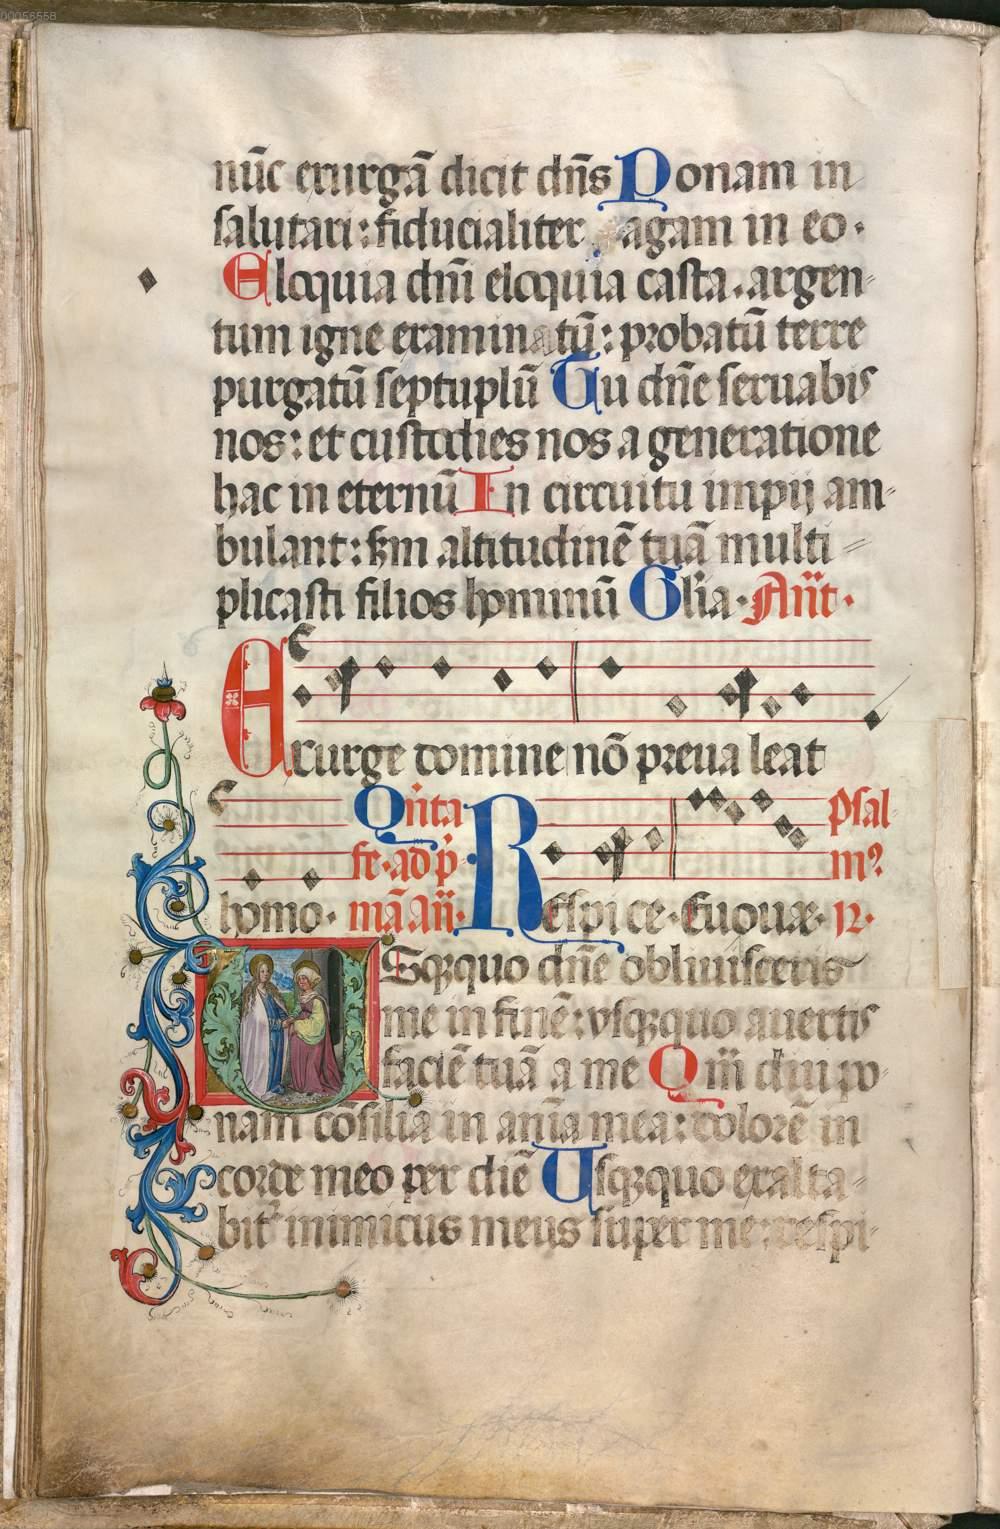 00056558
nūc exurgā dicit dn̄s Ponam in
salutari : fiducialiter agam in eo ·
Eloquia dn̄i eloquia casta . argen-
tum igne examinatū : probatū terre
purgatū septuplū Tu dn̄e seruabis
nos : et custodies nos a generatione
hac in eternū In circuitu impij am-
bulant : scd̄m altitudinē tuā multi-
plicasti filios hominū Gl̄ia · An̄t ·
Exurge domine nō preua leat
homo · Qn̄ta fe · ad p̄mā an̄ · Respi ce · Euouæ · psalm9 12 ·
Vsqꝫquo dn̄e obliuisceris
me in finē : vsqꝫquo auertis
faciē tuā a me Qm̄ diu po-
nam cōsilia in an̄ia mea : dolorē in
corde meo per diē Usqꝫquo exalta-
bit̄ inimicus meus super me : respi-